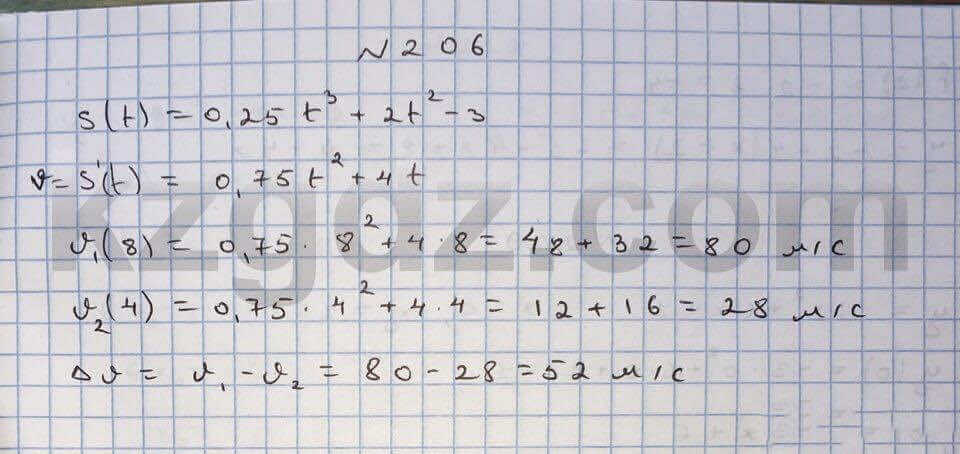 N 206
s(t) = 0,25 t³ + 2t² - 3
v = s'(t) = 0,75 t² + 4t
v₁(8) = 0,75 · 8² + 4 · 8 = 48 + 32 = 80 м/с
v₂(4) = 0,75 · 4² + 4 · 4 = 12 + 16 = 28 м/с
Δv = v₁ - v₂ = 80 - 28 = 52 м/с
kzgdz.com